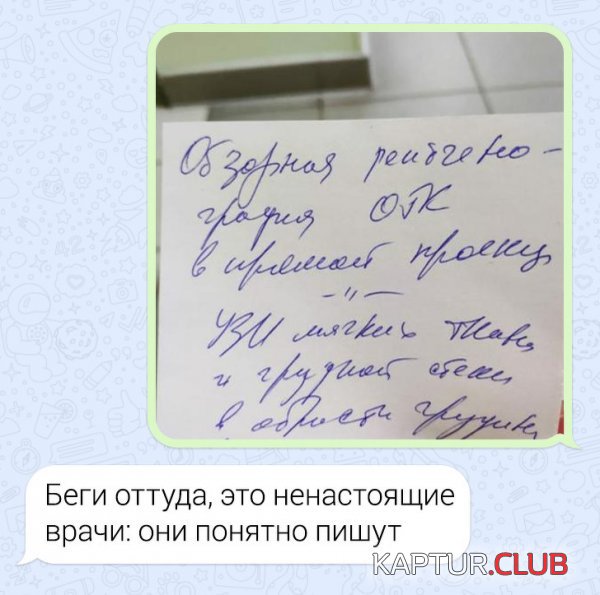 Обзорная рентгено-
графия ОГК
в прямой проекц
-"-
УЗИ мягких ткан
и грудной стенк
в области грудин
Беги оттуда, это ненастоящие
врачи: они понятно пишут
KAPTUR.CLUB